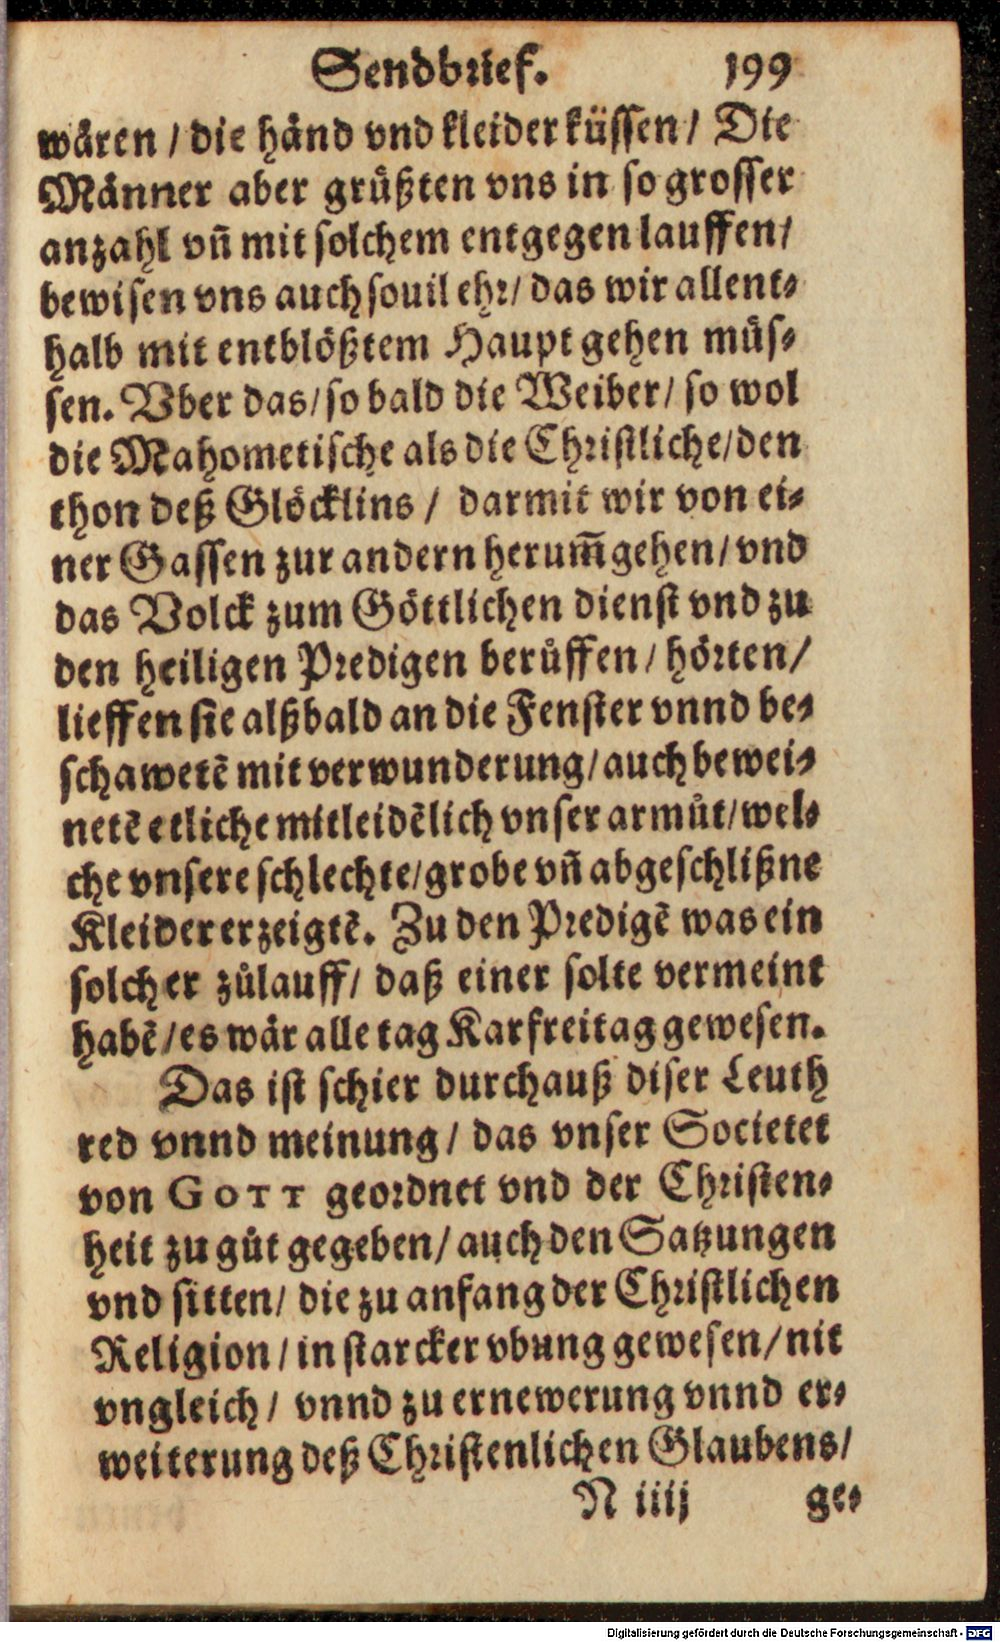 Sendbrief. 199
wären / die händ vnd kleider küssen / Die
Männer aber grůßten vns in so grosser
anzahl vñ mit solchem entgegen lauffen /
bewisen vns auch souil ehr / das wir allent-
halb mit entblößtem Haupt gehen müs-
sen. Vber das / so bald die Weiber / so wol
die Mahometische als die Christliche / den
thon deß Glöcklins / darmit wir von ei-
ner Gassen zur andern herum̃gehen / vnd
das Volck zum Göttlichen dienst vnd zu
den heiligen Predigen berůffen / hörten /
lieffen sie alßbald an die Fenster vnnd be-
schawetẽ mit verwunderung / auch bewei-
netẽ etliche mitleidẽlich vnser armůt / wel-
che vnsere schlechte / grobe vñ abgeschlißne
Kleider erzeigtẽ. Zu den Predigẽ was ein
solcher zůlauff / daß einer solte vermeint
habẽ / es wär alle tag Karfreitag gewesen.
Das ist schier durchauß diser Leuth
red vnnd meinung / das vnser Societet
von GOTT geordnet vnd der Christen-
heit zu gůt gegeben / auch den Satzungen
vnd sitten / die zu anfang der Christlichen
Religion / in starcker vbung gewesen / nit
vngleich / vnnd zu ernewerung vnnd er-
weiterung deß Christenlichen Glaubens /
N iiij ge-
Digitalisierung gefördert durch die Deutsche Forschungsgemeinschaft - DFG